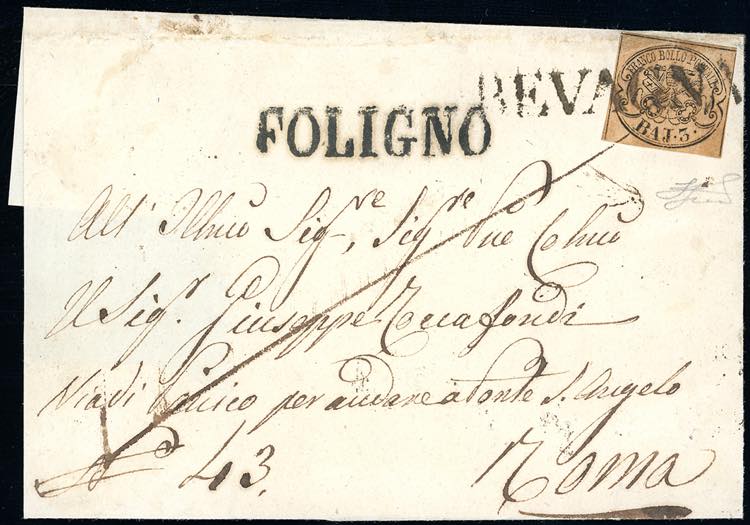 FRANCO BOLLO POSTALE
BAJ. 3.
BEVAGNA
FOLIGNO
All' Illmo Sigre, Sigre Pne Colmo
Il Sigr. Giuseppe Toccafondi
Via di per andare a Ponte S. Angelo
43.
Roma